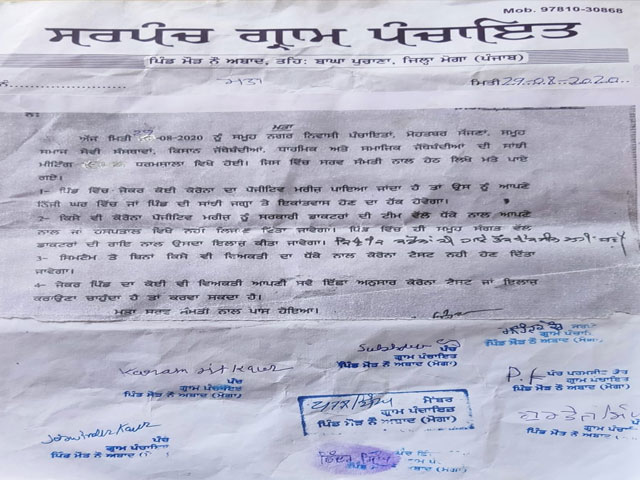 Mob. 97810-30868
ਸਰਪੰਚ ਗ੍ਰਾਮ ਪੰਚਾਇਤ
ਪਿੰਡ ਮੌੜ ਨੌ ਅਬਾਦ, ਤਹਿ: ਬਾਘਾ ਪੁਰਾਣਾ, ਜਿਲ੍ਹਾ ਮੋਗਾ (ਪੰਜਾਬ)
ਨੰ. ਮਤਾ ਮਿਤੀ 29-08-2020
ਮਤਾ
ਅੱਜ ਮਿਤੀ 29-08-2020 ਨੂੰ ਸਮੂਹ ਨਗਰ ਨਿਵਾਸੀ ਪੰਚਾਇਤਾਂ, ਮੋਹਤਬਰ ਸੱਜਣਾਂ, ਸਮੂਹ
ਸਮਾਜ ਸੇਵੀ ਸੰਸਥਾਵਾਂ, ਕਿਸਾਨ ਜੱਥੇਬੰਦੀਆਂ, ਧਾਰਮਿਕ ਅਤੇ ਸਮਾਜਿਕ ਜੱਥੇਬੰਦੀਆਂ ਦੀ ਸਾਂਝੀ
ਮੀਟਿੰਗ ਧਰਮਸ਼ਾਲਾ ਵਿਖੇ ਹੋਈ। ਜਿਸ ਵਿੱਚ ਸਰਵ ਸੰਮਤੀ ਨਾਲ ਹੇਠ ਲਿਖੇ ਮਤੇ ਪਾਏ
ਗਏ।
1- ਪਿੰਡ ਵਿੱਚ ਜੇਕਰ ਕੋਈ ਕੋਰੋਨਾ ਦਾ ਪੋਜੀਟਿਵ ਮਰੀਜ਼ ਪਾਇਆ ਜਾਂਦਾ ਹੈ ਤਾਂ ਉਸ ਨੂੰ ਆਪਣੇ
ਨਿੱਜੀ ਘਰ ਵਿੱਚ ਜਾਂ ਪਿੰਡ ਦੀ ਸਾਂਝੀ ਜਗ੍ਹਾ ਤੇ ਇਕਾਂਤਵਾਸ ਹੋਣ ਦਾ ਹੱਕ ਹੋਵੇਗਾ।
2- ਕਿਸੇ ਵੀ ਕੋਰੋਨਾ ਪੋਜੀਟਿਵ ਮਰੀਜ਼ ਨੂੰ ਸਰਕਾਰੀ ਡਾਕਟਰਾਂ ਦੀ ਟੀਮ ਵੱਲੋਂ ਧੱਕੇ ਨਾਲ ਆਪਣੇ
ਨਾਲ ਜਾਂ ਹਸਪਤਾਲ ਵਿਖੇ ਨਹੀਂ ਲਿਜਾਣ ਦਿੱਤਾ ਜਾਵੇਗਾ। ਪਿੰਡ ਵਿੱਚ ਹੀ ਸਮੂਹ ਸੰਗਤ ਵੱਲੋਂ
ਡਾਕਟਰਾਂ ਦੀ ਰਾਇ ਨਾਲ ਉਸਦਾ ਇਲਾਜ਼ ਕੀਤਾ ਜਾਵੇਗਾ।
3- ਸਿਮਟਿਮ ਤੋਂ ਬਿਨਾਂ ਕਿਸੇ ਵੀ ਵਿਅਕਤੀ ਦਾ ਧੱਕੇ ਨਾਲ ਕੋਰੋਨਾ ਟੈਸਟ ਨਹੀ ਹੋਣ ਦਿੱਤਾ
ਜਾਵੇਗਾ।
4- ਜੇਕਰ ਪਿੰਡ ਦਾ ਕੋਈ ਵੀ ਵਿਅਕਤੀ ਆਪਣੀ ਸਵੈ ਇੱਛਾ ਅਨੁਸਾਰ ਕੋਰੋਨਾ ਟੈਸਟ ਜਾਂ ਇਲਾਜ਼
ਕਰਾਉਣਾ ਚਾਹੁੰਦਾ ਹੈ ਤਾਂ ਕਰਵਾ ਸਕਦਾ ਹੈ।
ਮਤਾ ਸਰਵ ਸੰਮਤੀ ਨਾਲ ਪਾਸ ਹੋਇਆ।
ਪਿੰਡ ਮੌੜ ਨੌ ਅਬਾਦ (ਮੋਗਾ)
ਪੰਚ
ਗ੍ਰਾਮ ਪੰਚਾਇਤ
ਪਿੰਡ ਮੌੜ ਨੌ ਅਬਾਦ (ਮੋਗਾ)
Karam jit kaur
ਪੰਚ
ਗ੍ਰਾਮ ਪੰਚਾਇਤ
ਪਿੰਡ ਮੌੜ ਨੌ ਅਬਾਦ (ਮੋਗਾ)
P.K ਪੰਚ ਪਰਮਜੀਤ ਕੌਰ
ਗ੍ਰਾਮ ਪੰਚਾਇਤ
ਪਿੰਡ ਮੌੜ ਨੌ ਅਬਾਦ (ਮੋਗਾ)
ਮੈਂਬਰ
ਗ੍ਰਾਮ ਪੰਚਾਇਤ
ਪਿੰਡ ਮੌੜ ਨੌ ਅਬਾਦ (ਮੋਗਾ)
Jaswinder Kaur
ਪੰਚ
ਗ੍ਰਾਮ ਪੰਚਾਇਤ
ਪਿੰਡ ਮੌੜ ਨੌ ਅਬਾਦ
ਪੰਚ
ਗ੍ਰਾਮ ਪੰਚਾਇਤ
ਪਿੰਡ ਮੌੜ ਨੌ ਅਬਾਦ (ਮੋਗਾ)